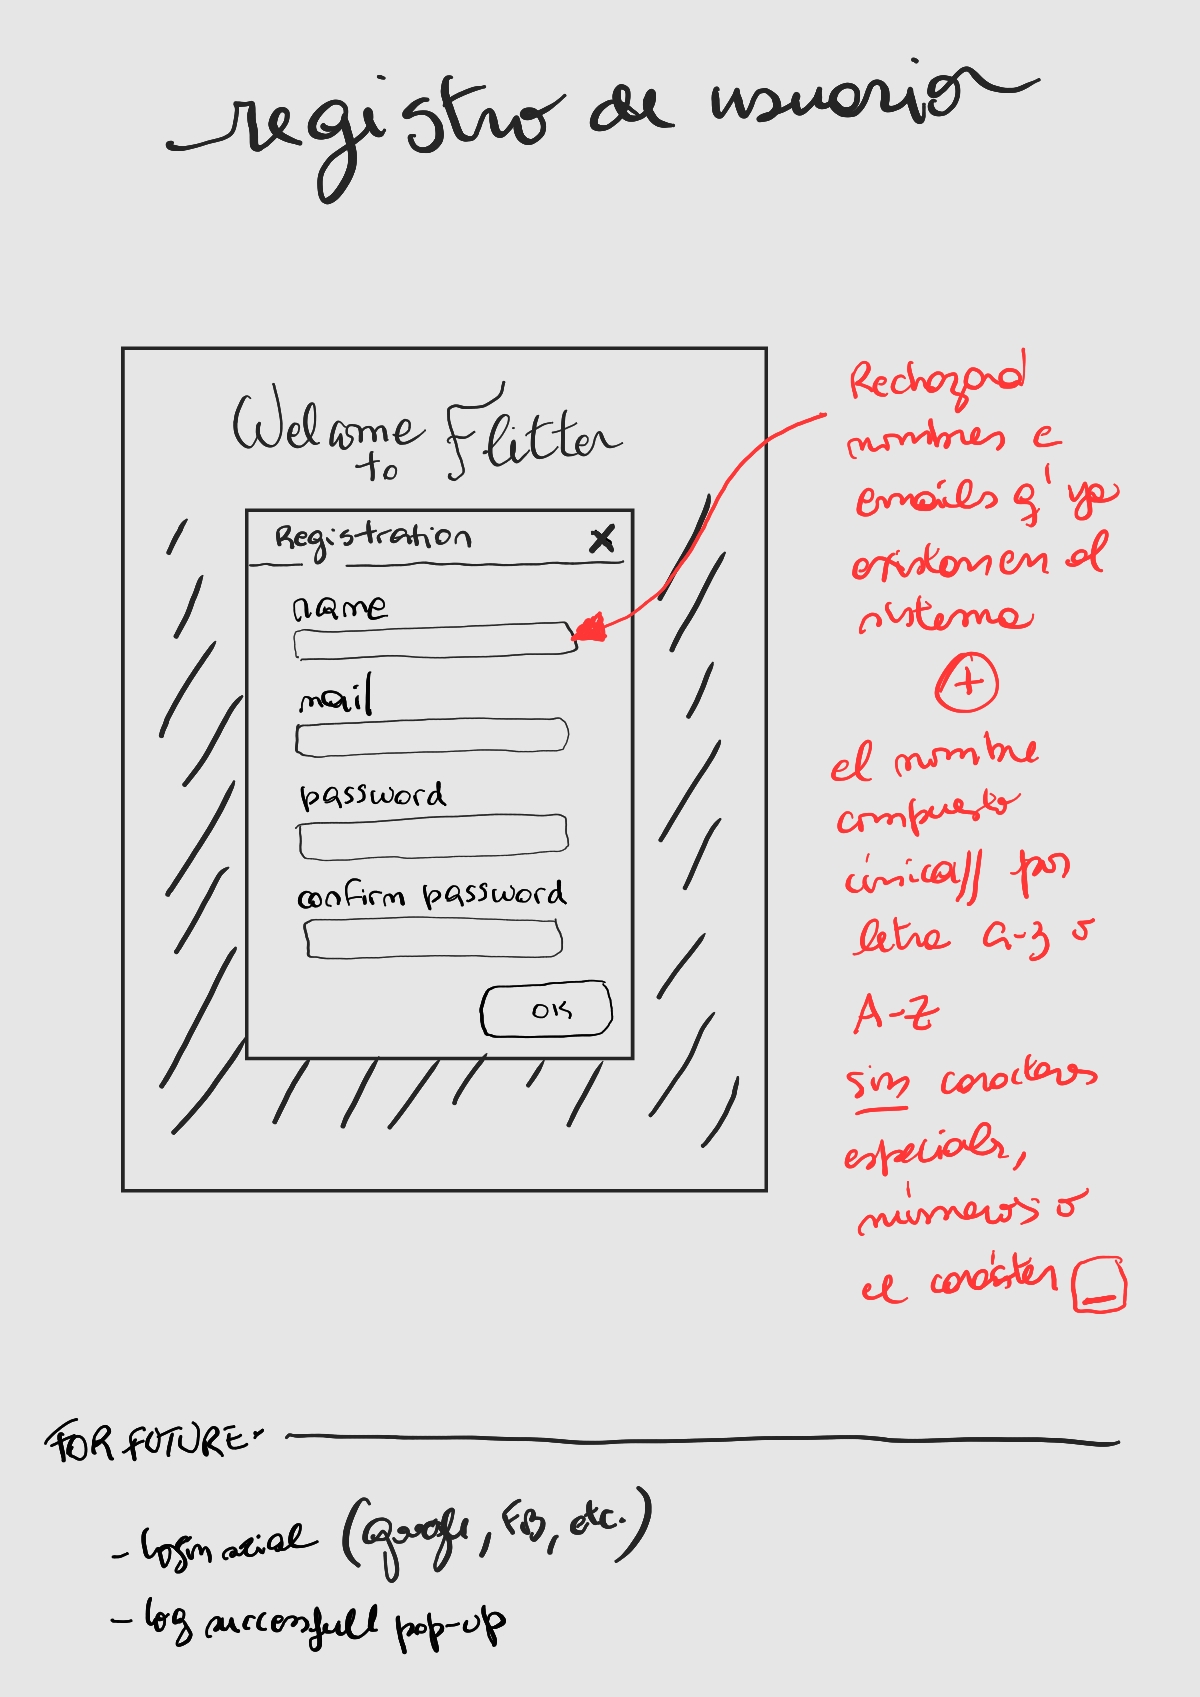 registro de usuario
Welcome
to Flitter
Registration X
name
mail
password
confirm password
OK
Rechazad
nombres e
emails q' ya
existan en el
sistema
+
el nombre
compuesto
única// por
letra a-z o
A-Z
sin caracteres
especiales,
números o
el carácter _
FOR FUTURE:
- login social (google, FB, etc.)
- log successfull pop-up